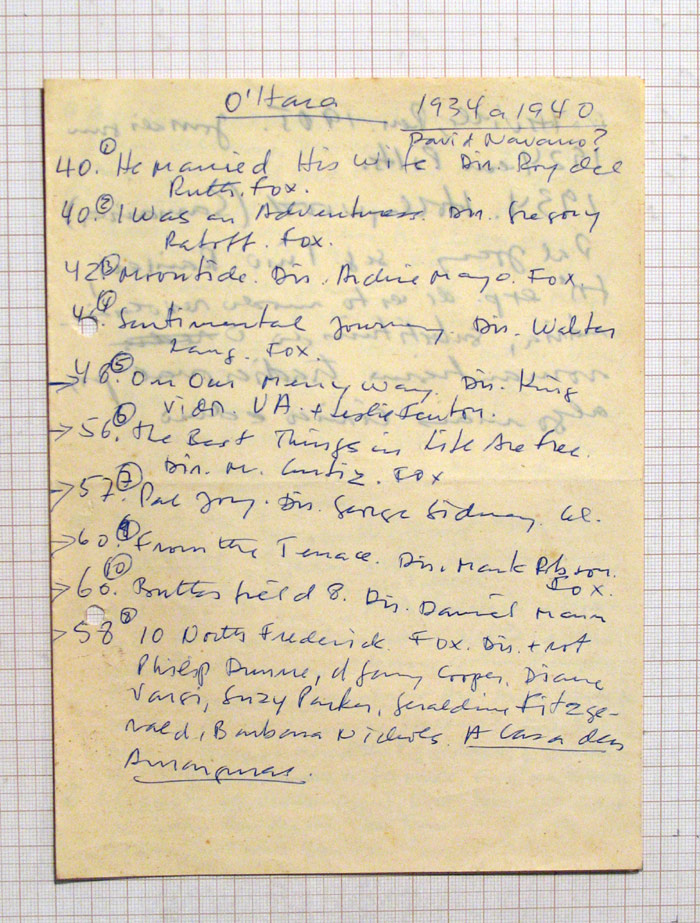 O'Hara 1934 a 1940
David Navarro?
40. ① He Married His Wife Dir. Roy del
Ruth. Fox.
40. ② I Was an Adventuress. Dir. Gregory
Ratoff. Fox.
42. ③ Moontide. Dir. Archie Mayo. Fox
46. ④ Sentimental Journey. Dir. Walter
Lang. Fox.
→ 48. ⑤ On Our Merry Way. Dir. King
Vidor. UA. + Leslie Fenton.
→ 56. ⑥ The Best Things in Life Are Free.
Dir. M. Curtiz. Fox
→ 57. ⑦ Pal Joey. Dir. George Sidney. Col.
→ 60. ⑨ From the Terrace. Dir. Mark Robson.
Fox.
→ 60. ⑩ Butterfield 8. Dir. Daniel Mann
→ 58 ⑧ 10 North Frederick. Fox. Dir. + rot
Philip Dunne, d Gary Cooper, Diane
Varsi, Suzy Parker, Geraldine Fitzge-
rald, Barbara Nichols. A Casa das
Amarguras.